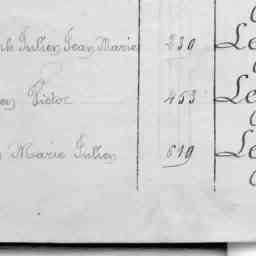 Julien Jean Marie 230 Le
Victor 453 Le
Marie Julien 619 Le